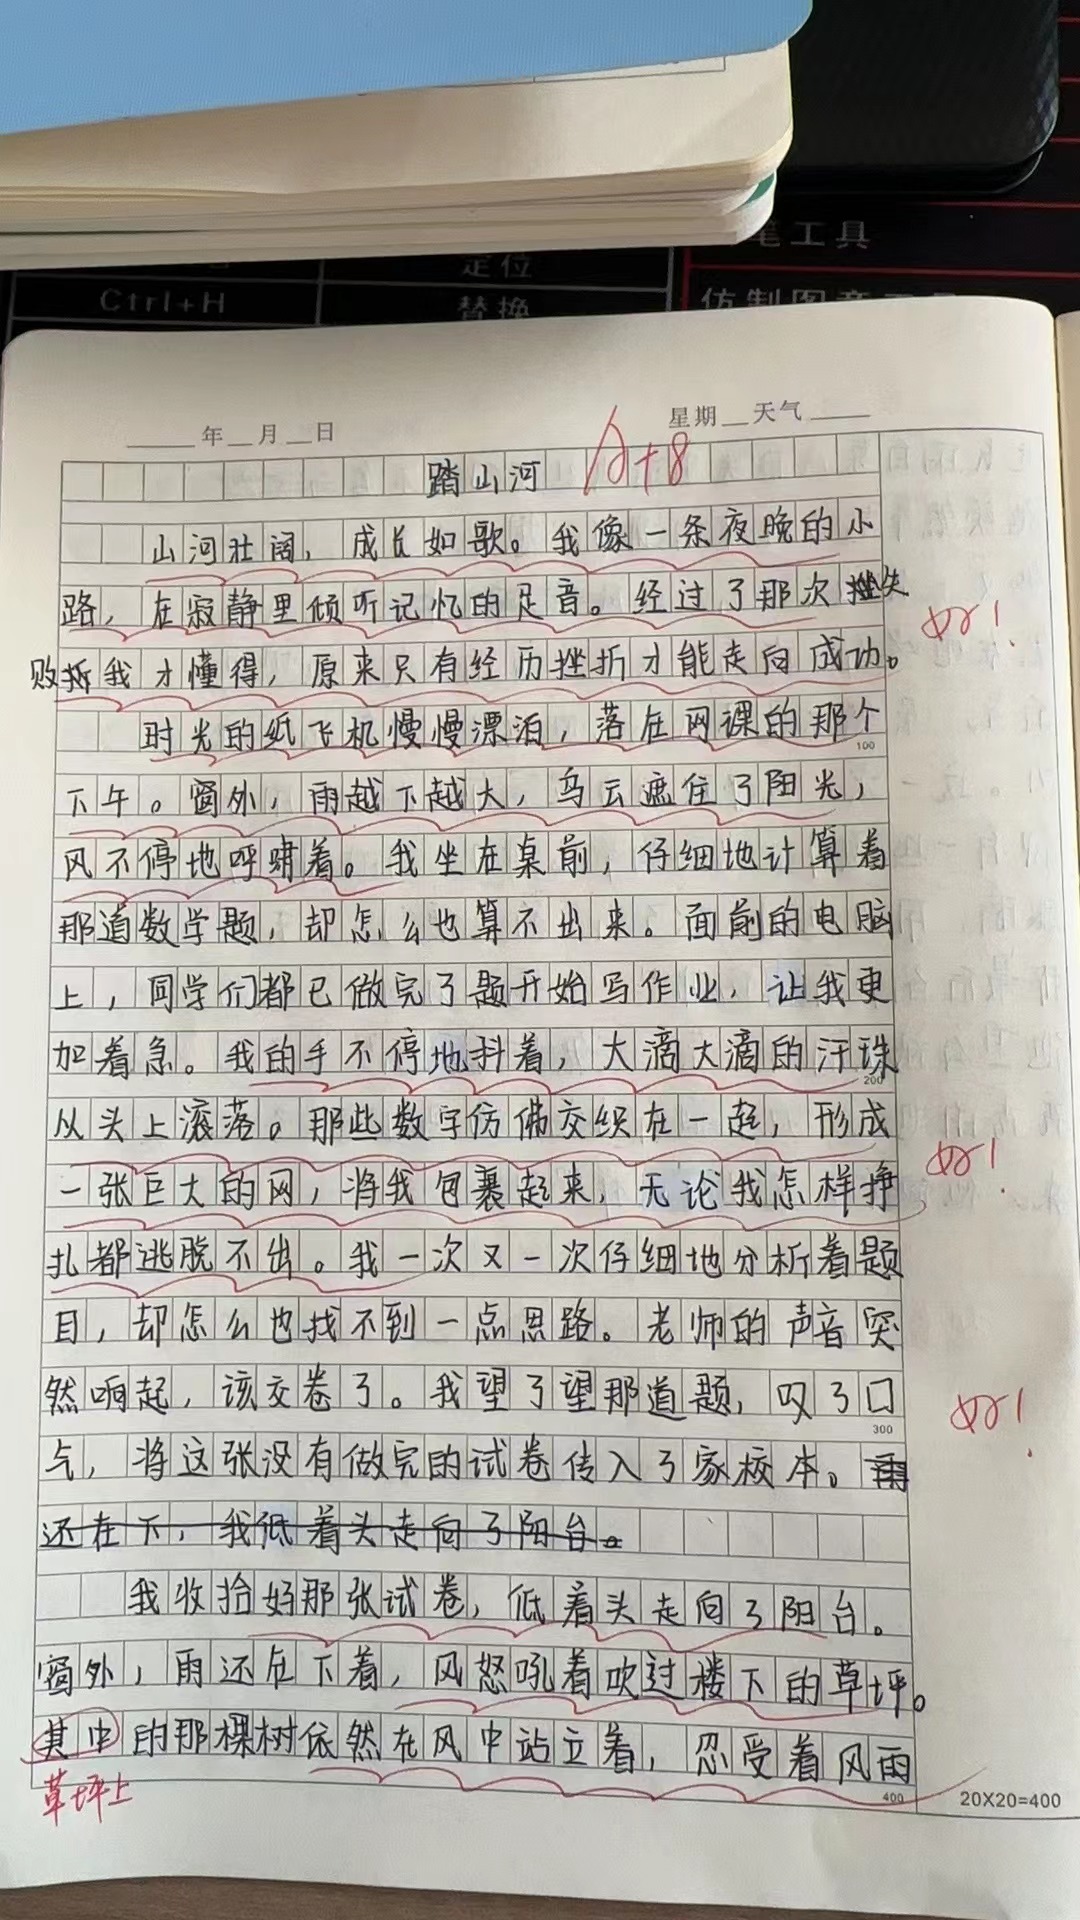 笔工具
定位
Ctrl+H
替换
年 月 日
星期 天气
踏山河
A+8
山河壮阔，成长如歌。我像一条夜晚的小
路，在寂静里倾听记忆的足音。经过了那次失
败我才懂得，原来只有经历挫折才能走向成功。
好！
时光的纸飞机慢慢漂泊，落在网课的那个
100
下午。窗外，雨越下越大，乌云遮住了阳光，
风不停地呼啸着。我坐在桌前，仔细地计算着
那道数学题，却怎么也算不出来。面前的电脑
上，同学们都已做完了题开始写作业，让我更
加着急。我的手不停地抖着，大滴大滴的汗珠
200
从头上滚落。那些数字仿佛交织在一起，形成
好！
一张巨大的网，将我包裹起来，无论我怎样挣
扎都逃脱不出。我一次又一次仔细地分析着题
目，却怎么也找不到一点思路。老师的声音突
然响起，该交卷了。我望了望那道题，叹了口
好！
300
气，将这张没有做完的试卷传入了家校本。雨
还在下，我低着头走向了阳台。
我收拾好那张试卷，低着头走向了阳台。
窗外，雨还在下着，风怒吼着吹过楼下的草坪。
其中的那棵树依然在风中站立着，忍受着风雨
草坪上
400
20X20=400